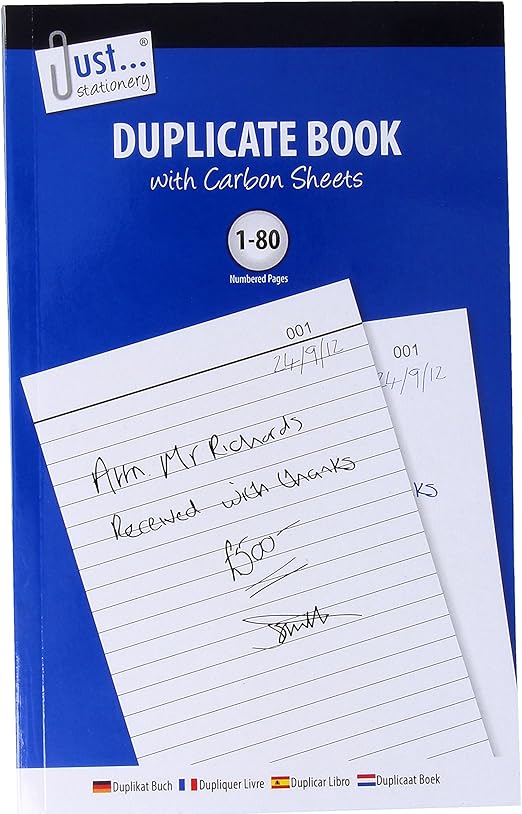 Just...®
stationery
DUPLICATE BOOK
with Carbon Sheets
1-80
Numbered Pages
001
24/9/12
Attn. Mr Richards
Received with thanks
£500-
Smith
001
24/9/12
ks
Duplikat Buch Dupliquer Livre Duplicar Libro Duplicaat Boek